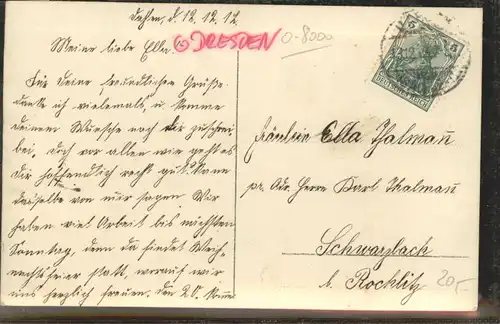 Dahlen, d. 12.12.12.
Meine liebe Ella.
DRESDEN
0-8000
Für Deine freundlichen Grüße
danke ich vielmals, u. komme
deinem Wunsche nach dir zuschrei
bei. Doch vor allen wie geht es
dir hoffentlich recht gut. Kann
dasselbe von mir sagen Wir
haben viel Arbeit bis nächsten
Sonntag, denn da findet Weih-
nachtsfeier statt, worauf wir
uns herzlich freuen. den 20.
DEUTSCHES REICH
Fräulein Ella Thalmann
pr. Adr. Herrn Karl Thalmann
Schwarzbach
b. Rochlitz
20,-